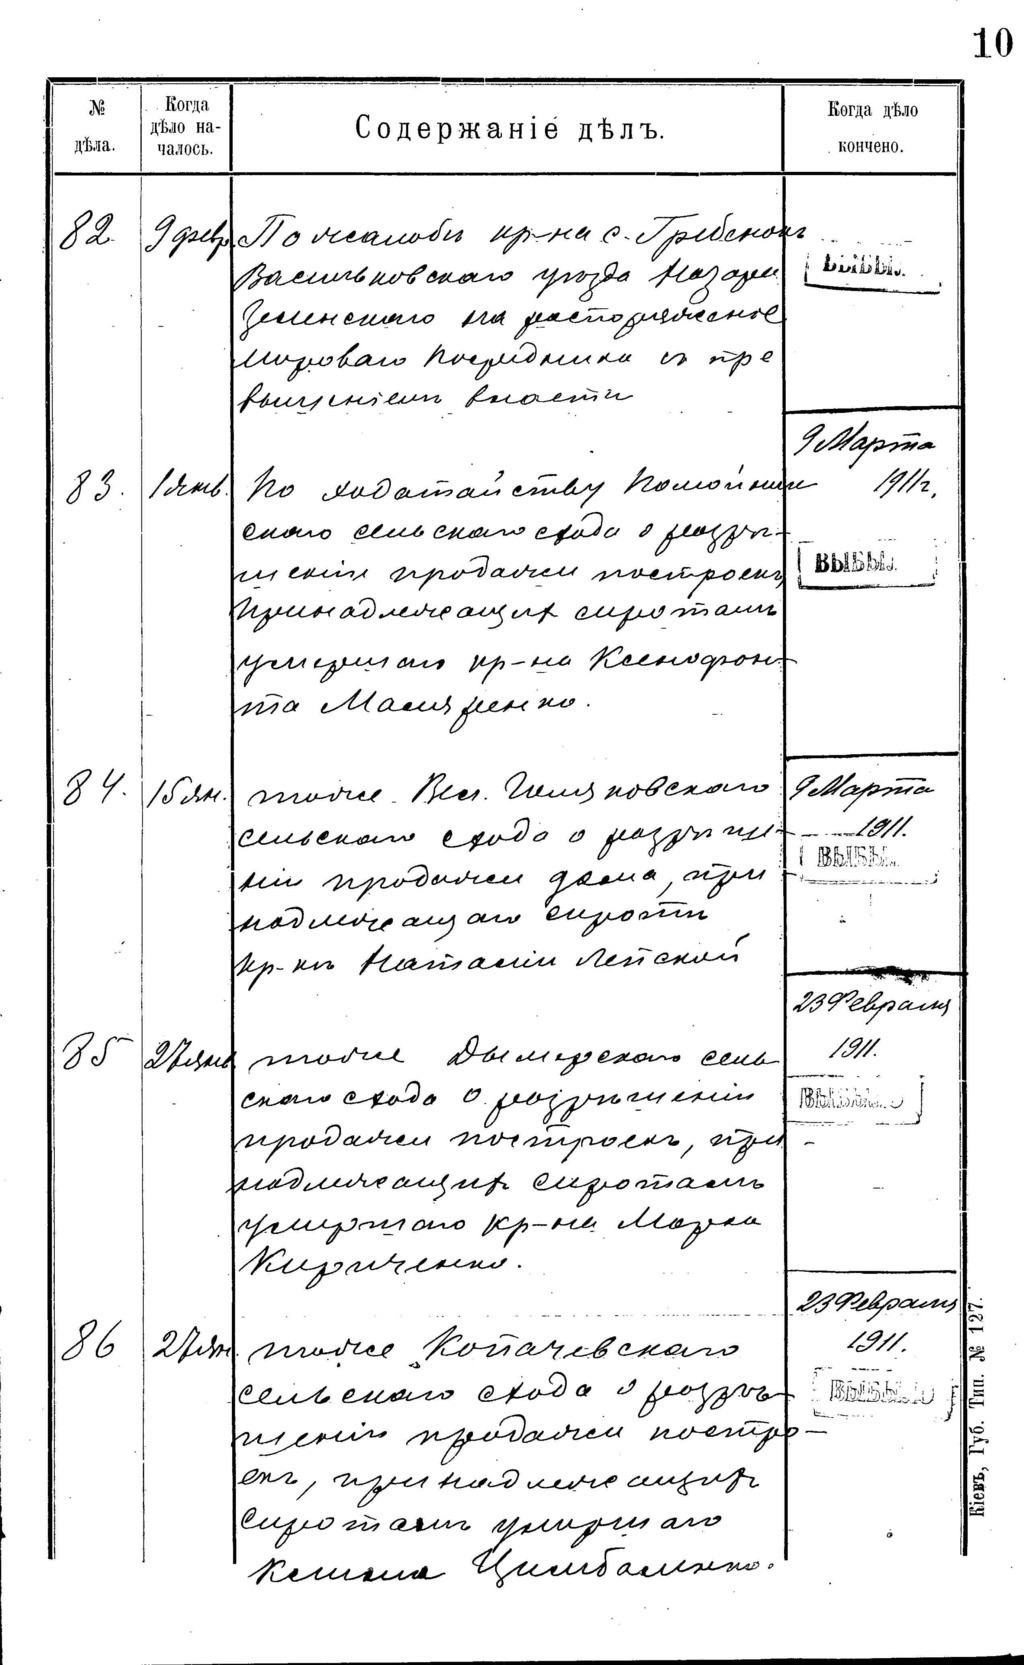 10
№ дѣла.
Когда дѣло на-
чалось.
Содержаніе дѣлъ.
Когда дѣло
кончено.
82. 9 февр По жалобѣ кр-на с. Гребенокъ
Васильковскаго уѣзда Назарія
Зеленскаго на распоряженіе
Мироваго Посредника съ пре
вышеніемъ власти
ВЫБЫЛ
9 Марта
83. 1 янв. По ходатайству 1911 г.
скаго сельскаго схода о разрѣ-
шеніи продажи построекъ
ВЫБЫЛ
принадлежащихъ сиротамъ
умершаго кр-на Ксенофон-
та
84. 15 ян. тоже Вел. сельскаго 9 Марта
сельскаго схода о разрѣше- 1911.
ніи продажи дома, при
ВЫБЫЛ
надлежащаго сиротѣ
кр-кѣ Наталіи Лепской
23 Февраля
85 27 янв тоже Дымерскаго сель 1911.
скаго схода о разрѣшеніи
ВЫБЫЛО
продажи построекъ, при
надлежащихъ сиротамъ
умершаго кр-на Марка
Кириченко.
23 Февраля
86 27 ян. тоже Копачевскаго 1911.
сельскаго схода о разрѣ-
ВЫБЫЛО
шеніи продажи постро-
екъ, принадлежащихъ
сиротамъ умершаго
Цимбаленко.
Кіевъ, Губ. Тип. № 127.